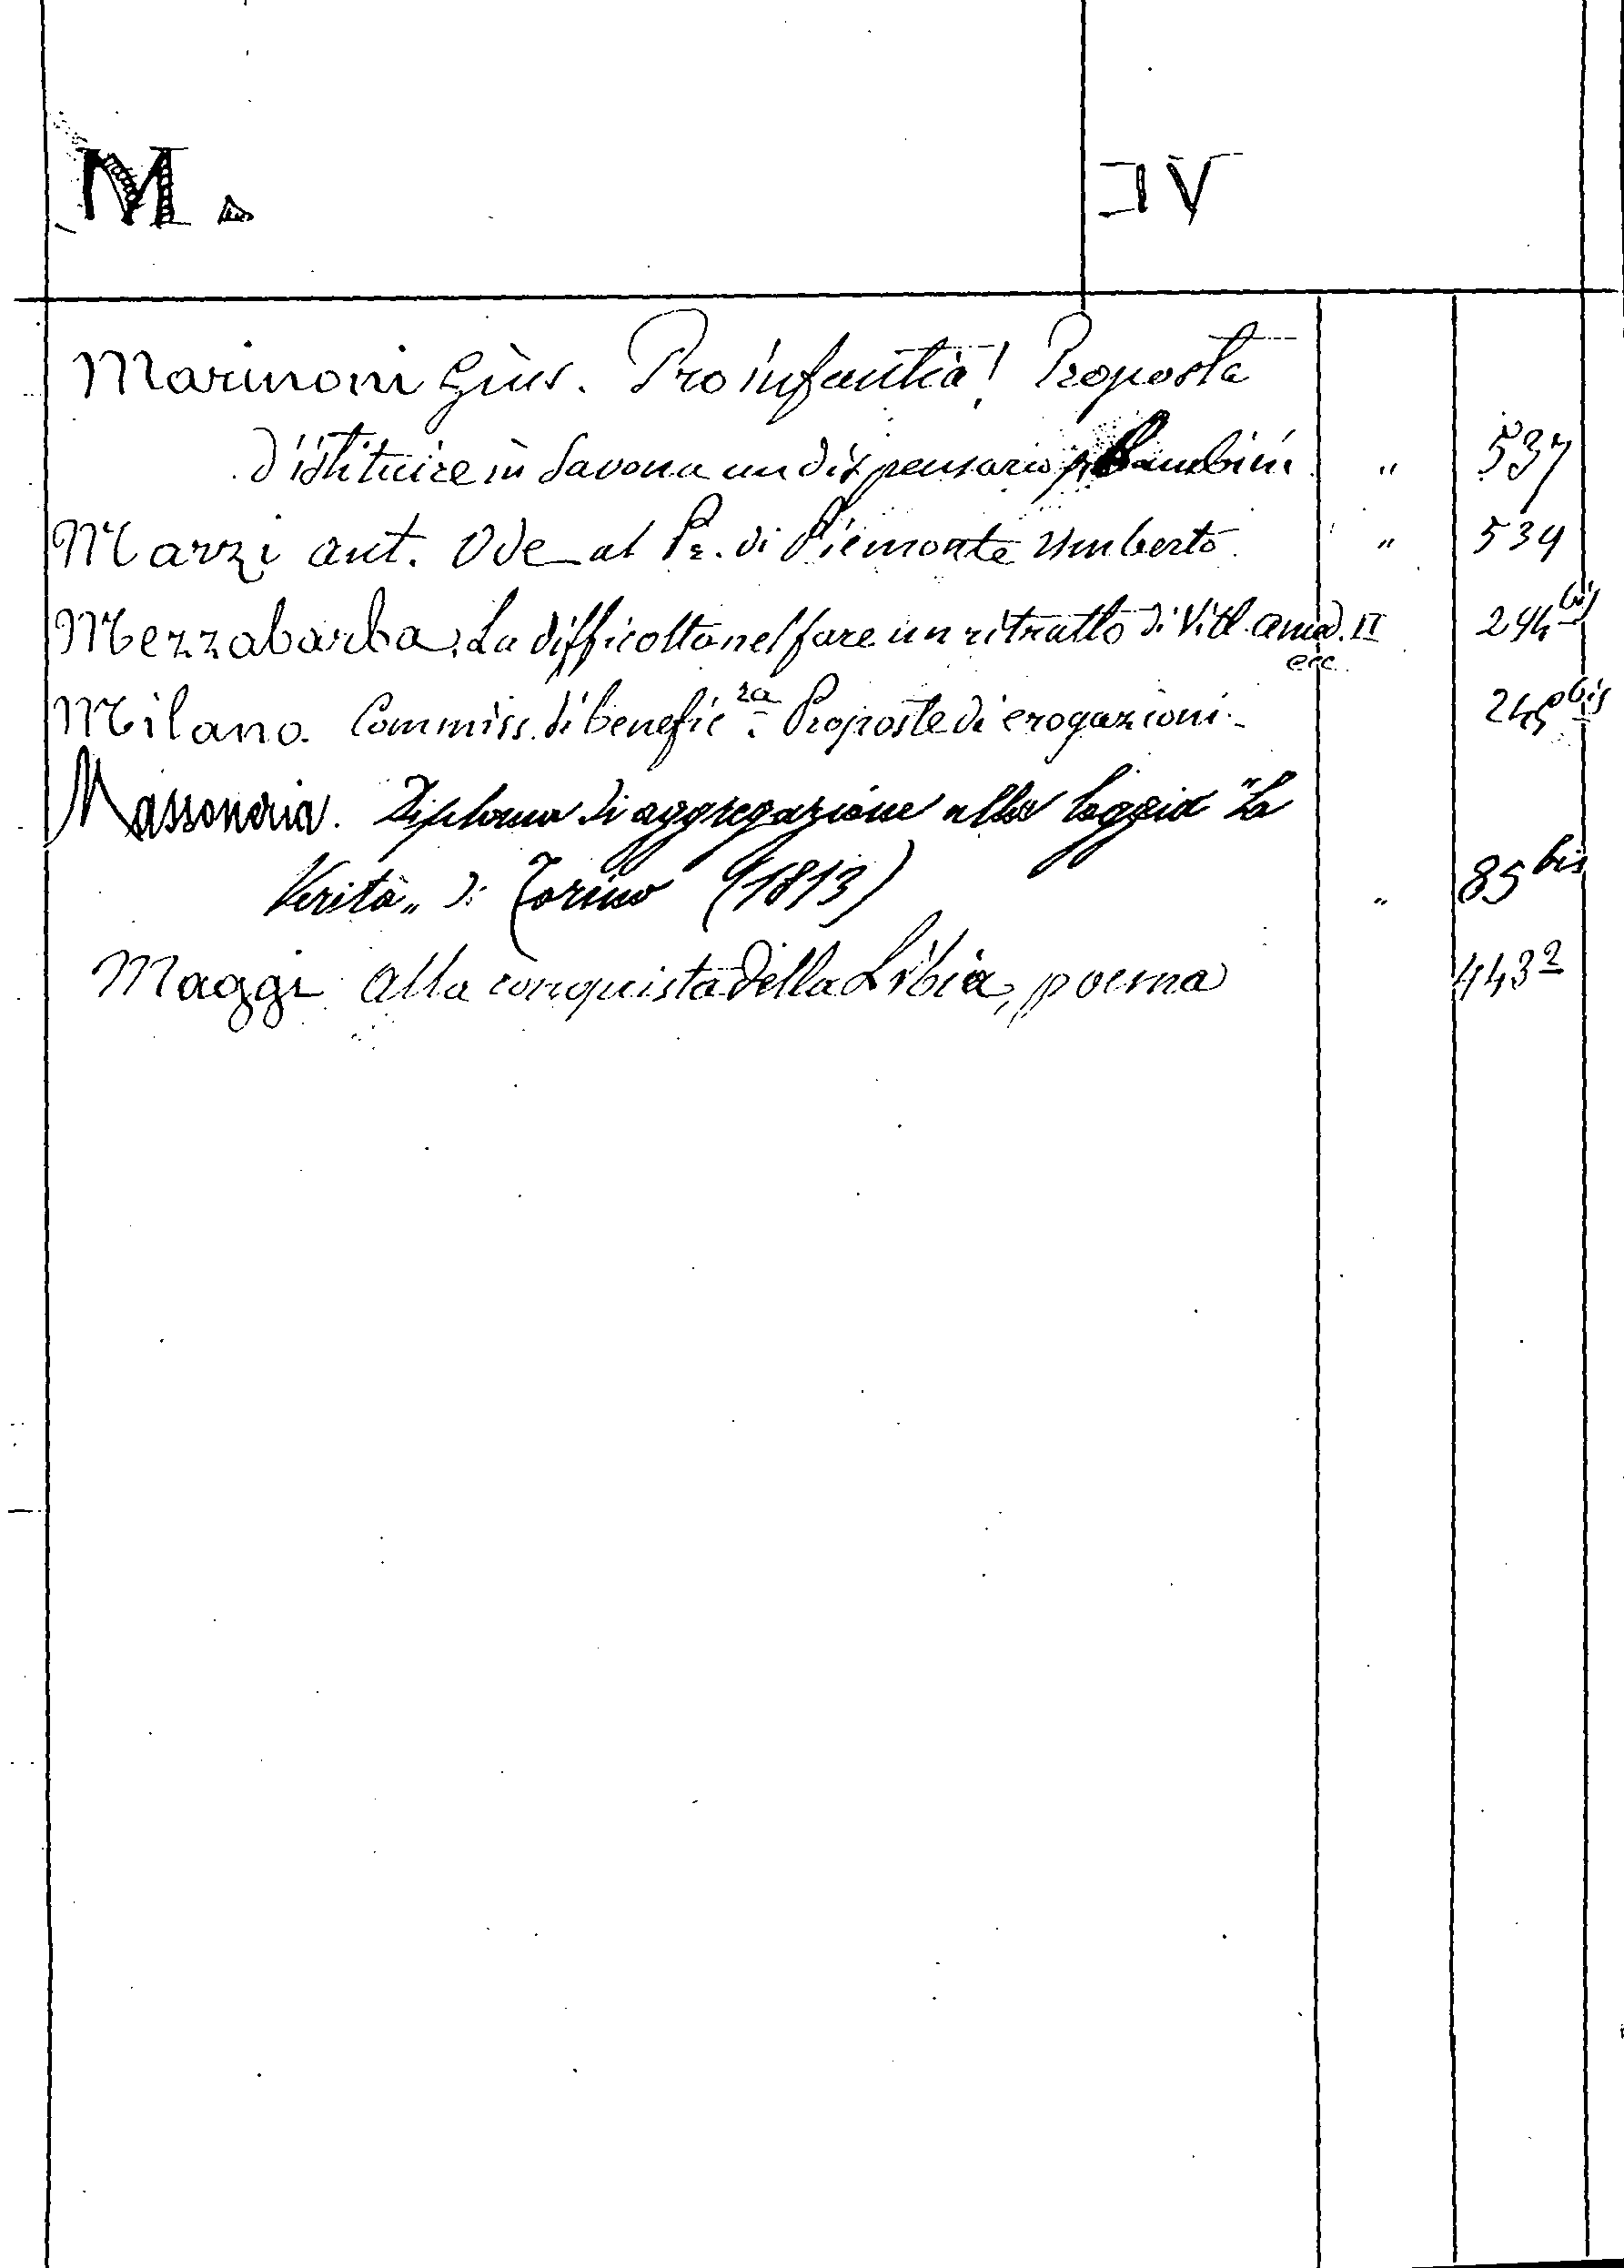 M.
IV
Marinoni Gius. Pro infantia! Proposta
d'istituire in Savona un dispensario p. Bambini " 537
Marzi Ant. Ode al Pr. di Piemonte Umberto. " 539
Mezzabarba. La difficoltà nel fare un ritratto di Vitt. Amed. II 294 bis
ecc.
Milano. Commiss. di benefic.za Proposte di erogazioni. 245 bis
Massoneria. Diploma di aggregazione alla loggia "La
Verità„ di Torino (1813) " 85 bis
Maggi Alla conquista della Libia, poema 443 2